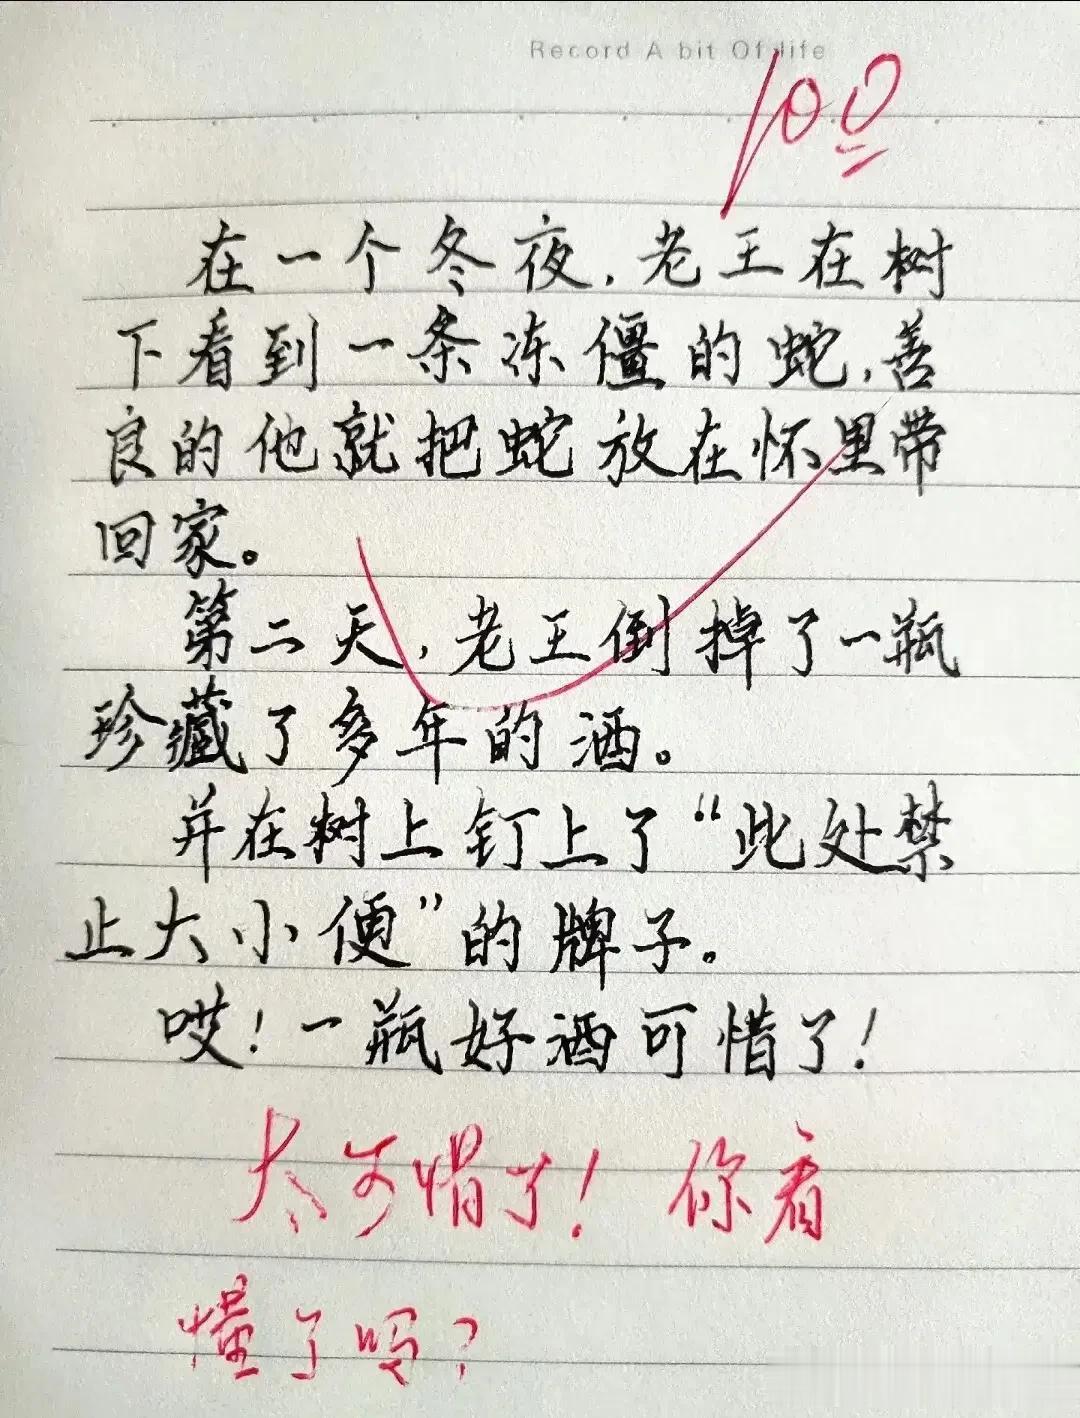 Record A bit Of life
100
在一个冬夜,老王在树
下看到一条冻僵的蛇,善
良的他就把蛇放在怀里带
回家。
第二天,老王倒掉了一瓶
珍藏了多年的酒。
并在树上钉上了“此处禁
止大小便”的牌子。
哎!一瓶好酒可惜了!
太可惜了!你看
懂了吗?